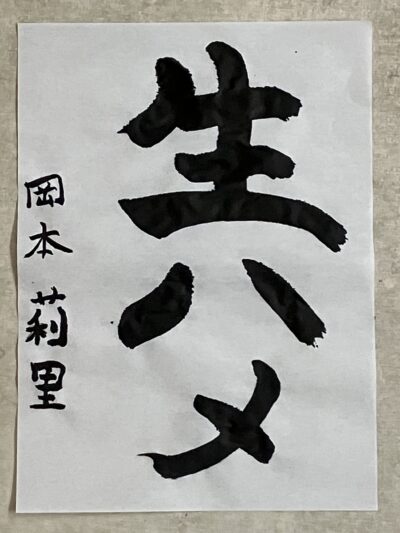 生ハメ
岡本莉里